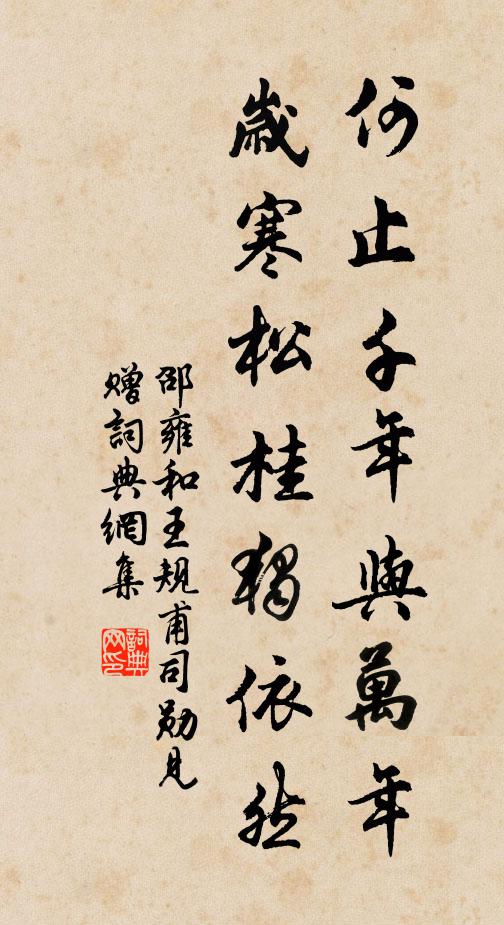 何止千年與萬年
歲寒松桂獨依然
邵雍和王規甫司勛見
贈詞典網集
詞典网印